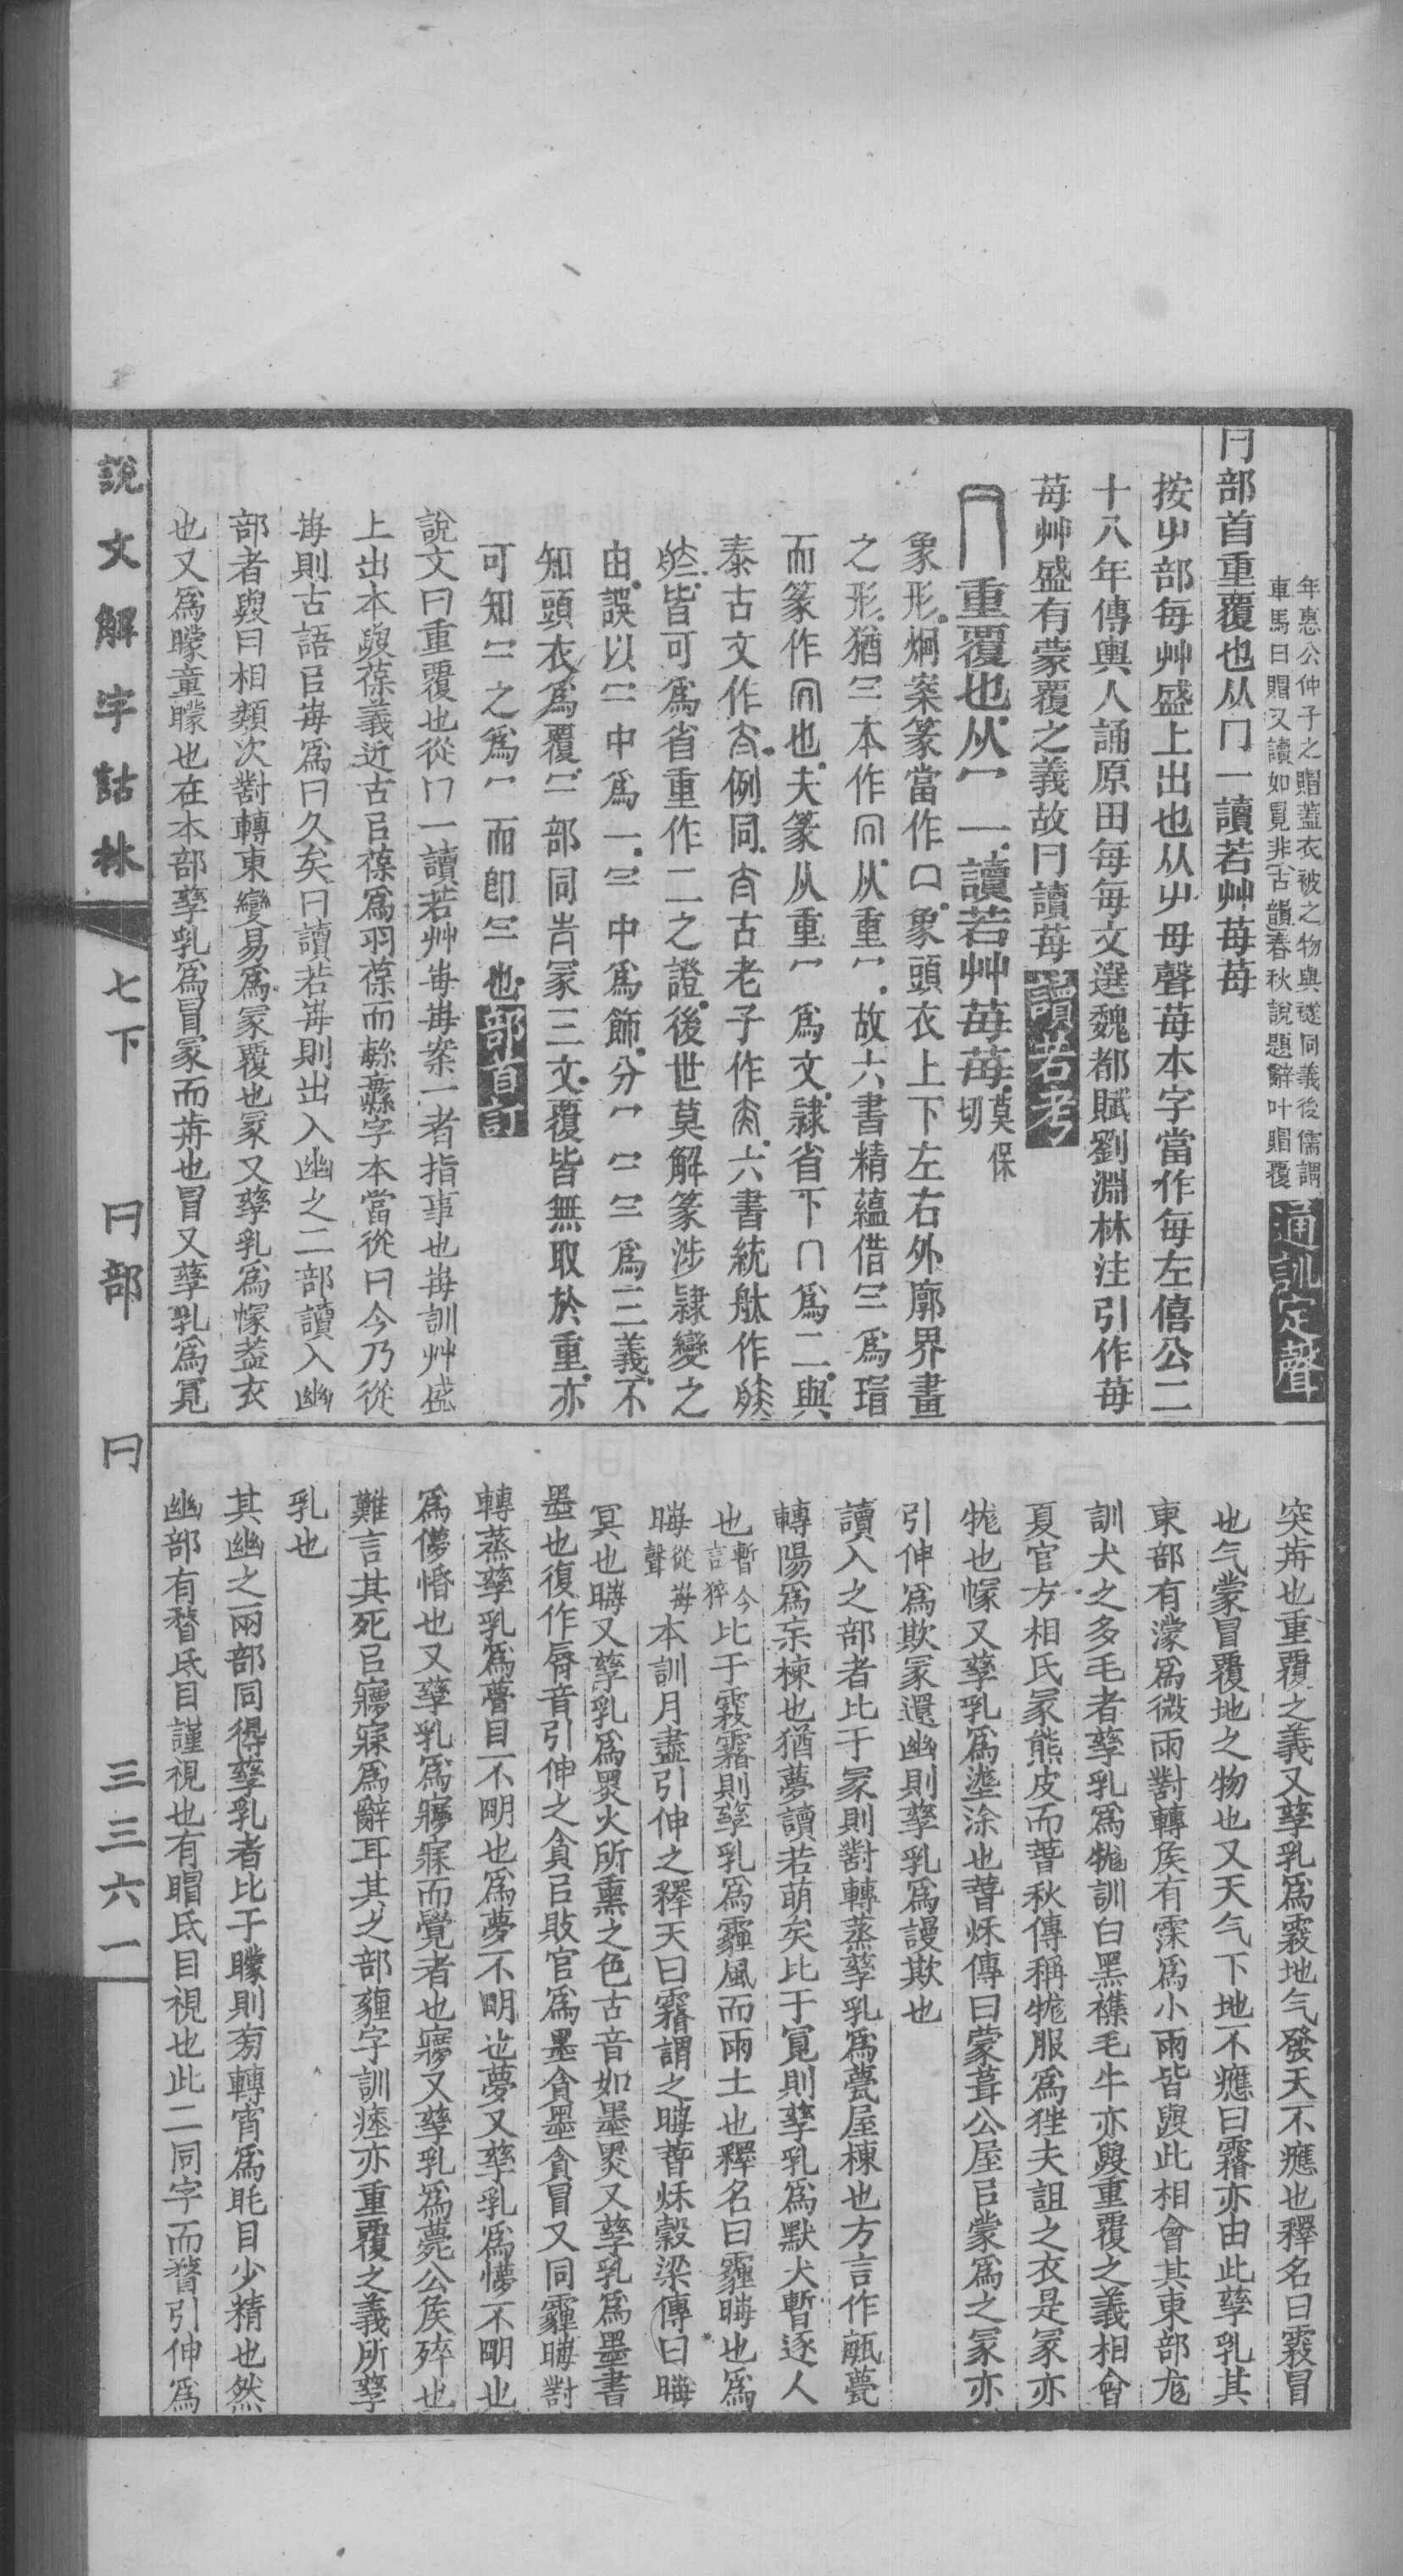 年惠公仲子之賵蓋衣被之物與襚同義後儒謂
車馬曰賵又讀如覓非古韻春秋說題辭叶賵覆
通訓定聲
冃部首重覆也从冂一讀若艸苺苺
按屮部每艸盛上出也从屮母聲苺本字當作每左僖公二
十八年傳輿人誦原田每每文選魏都賦劉淵林注引作苺
苺艸盛有蒙覆之義故冃讀苺讀若考
冂重覆也从冖一讀若艸苺苺莫保
切
象形烱案篆當作口象頭衣上下左右外廓界畫
之形猶𠔼本作同从重冖故六書精蘊借𠔼爲瑁
而篆作同也夫篆从重冖爲文隷省下冂爲二與
泰古文作夳例同夳古老子作夳六書統㕙作㕙
皆可爲省重作二之證後世莫解篆涉隷變之
由誤以𠔼中爲一𠔼中爲飾分冖𠔼𠔼爲三義不
知頭衣爲覆𠔼部同冡三文覆皆無取於重亦
可知𠔼之爲冖而卽𠔼也部首訂
說文曰重覆也從冂一讀若艸苺苺案一者指事也苺訓艸盛
上出本與葆義近古㠯葆爲羽葆而緐字本當從冃今乃從
每則古語㠯每爲冃久矣冃讀若苺則出入幽之二部讀入幽
部者與冃相類次對轉東變易爲冡覆也冡又孳乳爲幏蓋衣
也又爲矇童矇也在本部孳乳爲冒冡而歬也冒又孳乳爲冕
突歬也重覆之義又孳乳爲霚地气發天不應也釋名曰霚冒
也气蒙冒覆地之物也又天气下地不應曰霿亦由此孳乳其
東部有濛爲微雨對轉矦有霂爲小雨皆與此相會其東部尨
訓犬之多毛者孳乳爲牻訓白黑襍毛牛亦與重覆之義相會
夏官方相氏冡熊皮而萅秋傳稱牻服爲狌夫詛之衣是冡亦
牻也幏又孳乳爲塗涂也萅秌傳曰蒙葺公屋㠯蒙爲之冡亦
引伸爲欺冡還幽則孳乳爲謾欺也
讀入之部者比于冡則對轉蒸孳乳爲甍屋棟也方言作甂甍
轉陽爲杗棟也猶夢讀若萌矣比于冕則孳乳爲默犬暫逐人
也暫今言猝比于霚霿則孳乳爲霾風而雨土也釋名曰霾晦也爲
晦從每聲本訓月盡引伸之釋天曰霿謂之晦萅秌穀梁傳曰晦
冥也晦又孳乳爲㷅火所熏之色古音如墨㷅又孳乳爲墨書
墨也復作脣音引伸之貪㠯敗官爲墨貪墨貪冒又同霾晦對
轉蒸孳乳爲瞢目不朙也爲夢不朙也夢又孳乳爲懜不朙也
爲儚惛也又孳乳爲㝱寐而覺者也㝱又孳乳爲薨公矦殌也
難言其死㠯㝱寐爲辭耳其之部薶字訓瘞亦重覆之義所孳
乳也
其幽之兩部同得孳乳者比于矇則菊轉宵爲眊目少精也然
幽部有瞀氐目謹視也有䀤氐目視也此二同字而瞀引伸爲
說文解字詁林
七下
冃部
冃
三三六一